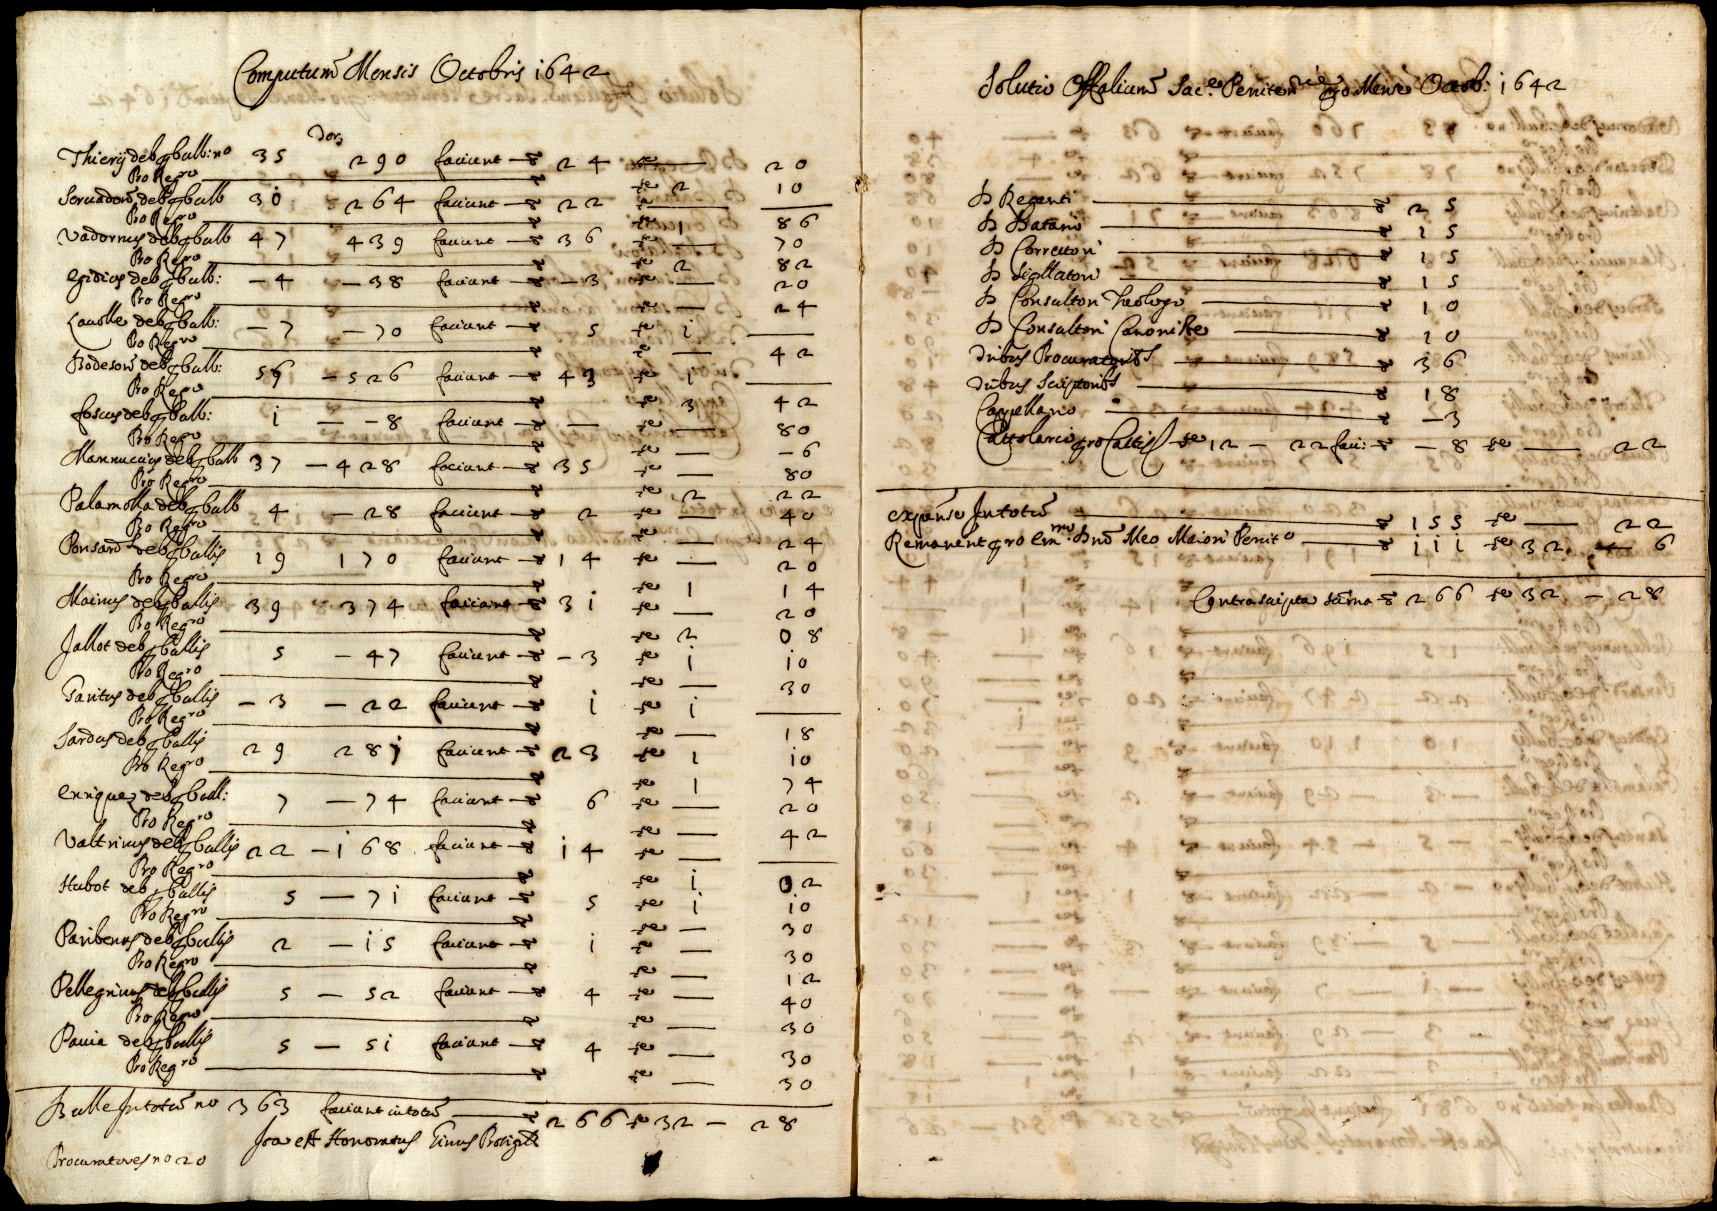 Computum Mensis Octobris 1642
Thierij deb. p bull. no 35 290 faciunt 24 — 20
Pro Regro — 2 10
Seruadom deb p bull 30 264 faciunt 22 —
Pro Regro — 1 86
Vadornus deb p bull 47 439 faciunt 36 — 70
Pro Regro — 2 82
Egidius deb p bull: — 4 — 38 faciunt — 3 — 20
Pro Regro — 24
deb p bull: — 7 — 70 faciunt 5 1 —
Pro Regro — 42
Bodeson deb p bull: 56 — 526 faciunt 43 1 —
Pro Regro — 3 42
foscus deb p bull: 1 — — 8 faciunt — — 80
Pro Regro — — 6
Mannuccius deb p bull 37 — 428 faciunt 35 — 80
Pro Regro — 2 22
Palamolla deb p bull 4 — 28 faciunt 2 — 40
Pro Regro — 24
Ponsard deb p bullis 19 170 faciunt 14 — 20
Pro Regro — 1 14
Mainus deb p bullis 39 374 faciunt 31 — 20
Pro Regro — 2 08
Jallot deb p bullis 5 — 47 faciunt — 3 1 10
Pro Regro — 30
Taritus deb p bullis — 3 — 22 faciunt 1 1 —
Pro Regro — 18
Sardus deb p bullis 29 281 faciunt 23 1 10
Pro Regro — 1 74
Enriquez deb p bull: 7 — 74 faciunt 6 — 20
Pro Regro — 42
Valtrinus deb p bullis 22 — 168 faciunt 14 — —
Pro Regro — 1 02
Hubot deb p bullis 5 — 71 faciunt 5 1 10
Pro Regro — 30
Paribenus deb p bullis 2 — 15 faciunt 1 — 30
Pro Regro — 12
Pellegrinus deb p bullis 5 — 52 faciunt 4 — 40
Pro Regro — 30
Pauia deb p bullis 5 — 51 faciunt 4 — 30
Pro Regro — 30
Bulle In totum no 363 faciunt in totum 266 32 — 28
Ita est Honoratus
Procuratores no 20
Solutio Offalium Sac.e Peniten.rie pro Mense Octob: 1642
D Regenti — 25
D Datario — 15
D Correttori — 15
D Sigillatori — 15
D Consultori Theologo — 10
D Consultori Canoniste — 10
Duibus Procuratoribus — 36
Duibus Scriptoribus — 18
Cappellano — 3
Cartolario pro Cartis 12 — 22 faci: — 8 — 22
expense In totum — 155 — 22
Remanent pro Em.mo Dno Meo Maiori Penit.o — 111 32 — 6
Contrascripta suma 266 32 — 28